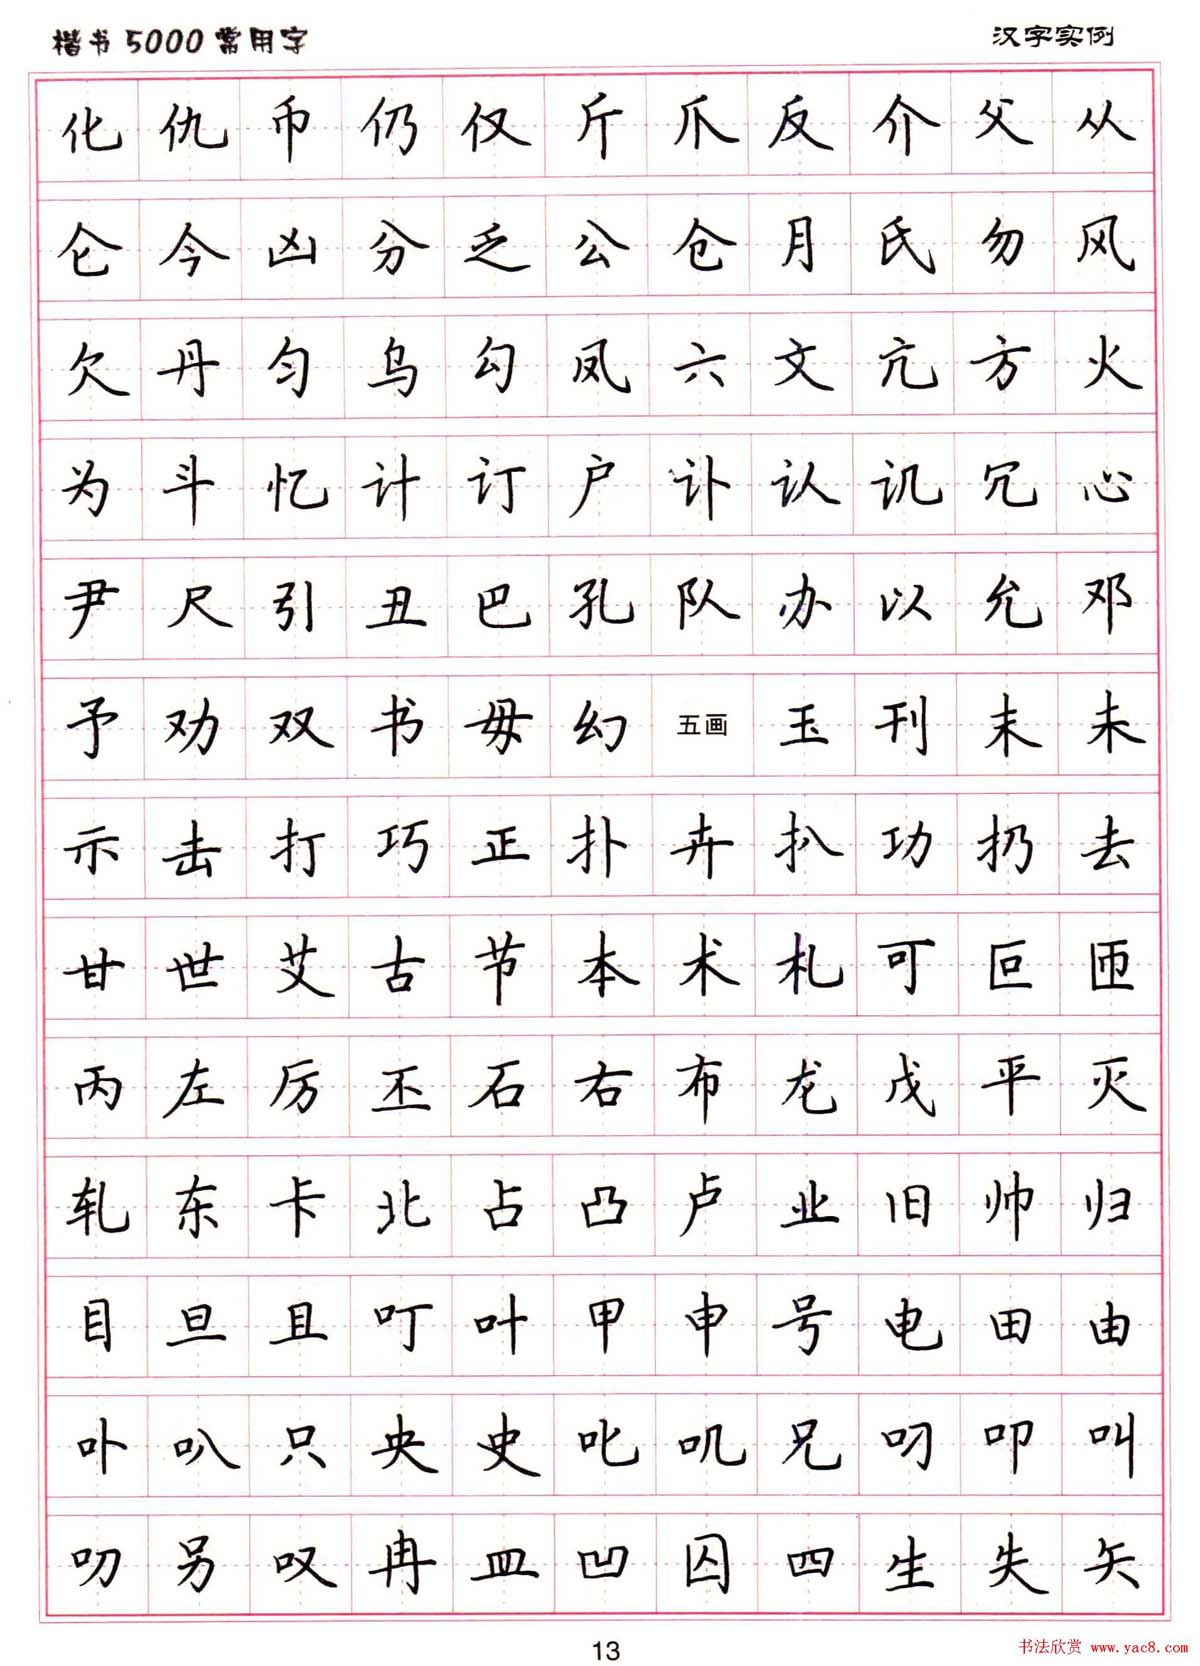 楷书 5000 常用字 汉字实例
化 仇 币 仍 仅 斤 爪 反 介 父 从
仑 今 凶 分 乏 公 仓 月 氏 勿 风
欠 丹 匀 乌 勾 凤 六 文 亢 方 火
为 斗 忆 计 订 户 讣 认 讥 冗 心
尹 尺 引 丑 巴 孔 队 办 以 允 邓
予 劝 双 书 毋 幻 五画 玉 刊 末 未
示 击 打 巧 正 扑 卉 扒 功 扔 去
甘 世 艾 古 节 本 术 札 可 叵 匝
丙 左 厉 丕 石 右 布 龙 戊 平 灭
轧 东 卡 北 占 凸 卢 业 旧 帅 归
目 旦 且 叮 叶 甲 申 号 电 田 由
卟 叭 只 央 史 叱 叽 兄 叼 叩 叫
叻 另 叹 冉 皿 凹 囚 四 生 失 矢
13
书法欣赏 www.yac8.com